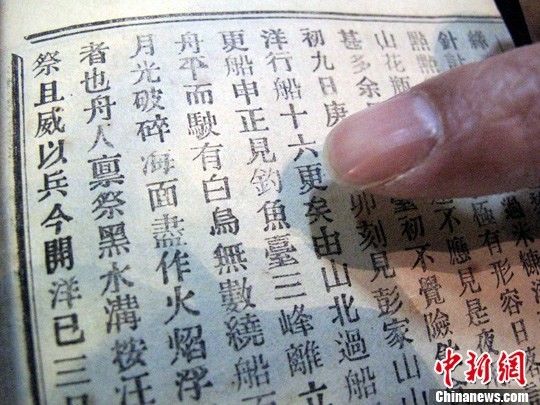 絲
針計過米糠洋
點點極有形容日落
山花瓶不應見是夜
甚多余初不覺險
初九日庚卯刻見彭家山山
洋行船十六更矣由山北過船
更船申正見釣魚臺三峰離立
舟平而駛有白鳥無數繞船
月光破碎海面盡作火焰浮
者也舟人稟祭黑水溝按汪
祭且威以兵今開洋已三日
中新網
Chinanews.com